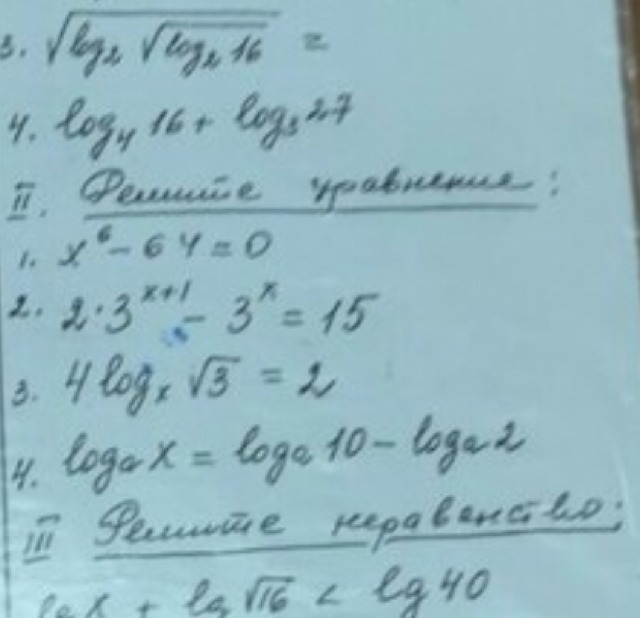 3. √log₂ √log₂ 16 =
4. log₄ 16 + log₃ 27
II. Решите уравнение:
1. x⁶ - 64 = 0
2. 2·3ˣ⁺¹ - 3ˣ = 15
3. 4 logₓ √3 = 2
4. logₐ x = logₐ 10 - logₐ 2
III Решите неравенство:
lg x + lg √16 < lg 40